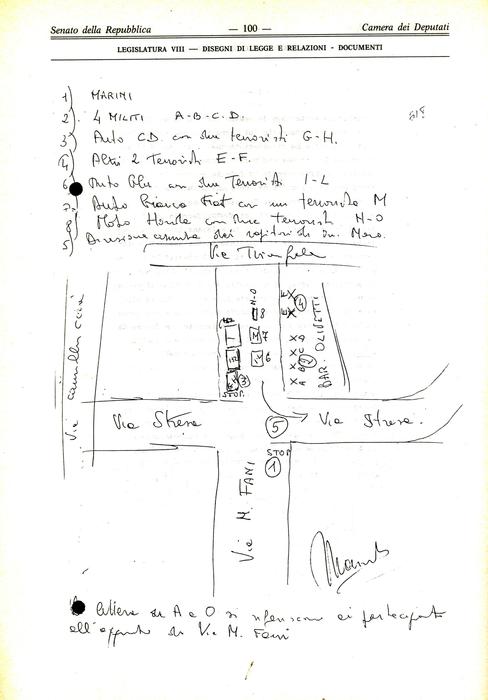 Senato della Repubblica — 100 — Camera dei Deputati
LEGISLATURA VIII — DISEGNI DI LEGGE E RELAZIONI - DOCUMENTI
1) MARINI
2) 4 MILITI A-B-C.D.
3) Auto CD con due terroristi G-H.
4) Altri 2 Terroristi E-F.
6 Auto Blu con due Terroristi I-L
7) Auto Bianca Fiat con un terrorista M
8 Moto Honda con due terroristi N-O
5) Direzione assunta dai rapitori di On. Moro.
Via Trionfale
Via Camilluccia
N-O
8
M 7
6
3
STOP
E F
4
A B C D
2
BAR OLIVETTI
Via Stresa
5
Via Stresa.
STOP
1
Via M. FANI
lettere da A e O si riferiscono ai partecipanti
all'agguato di Via M. Fani